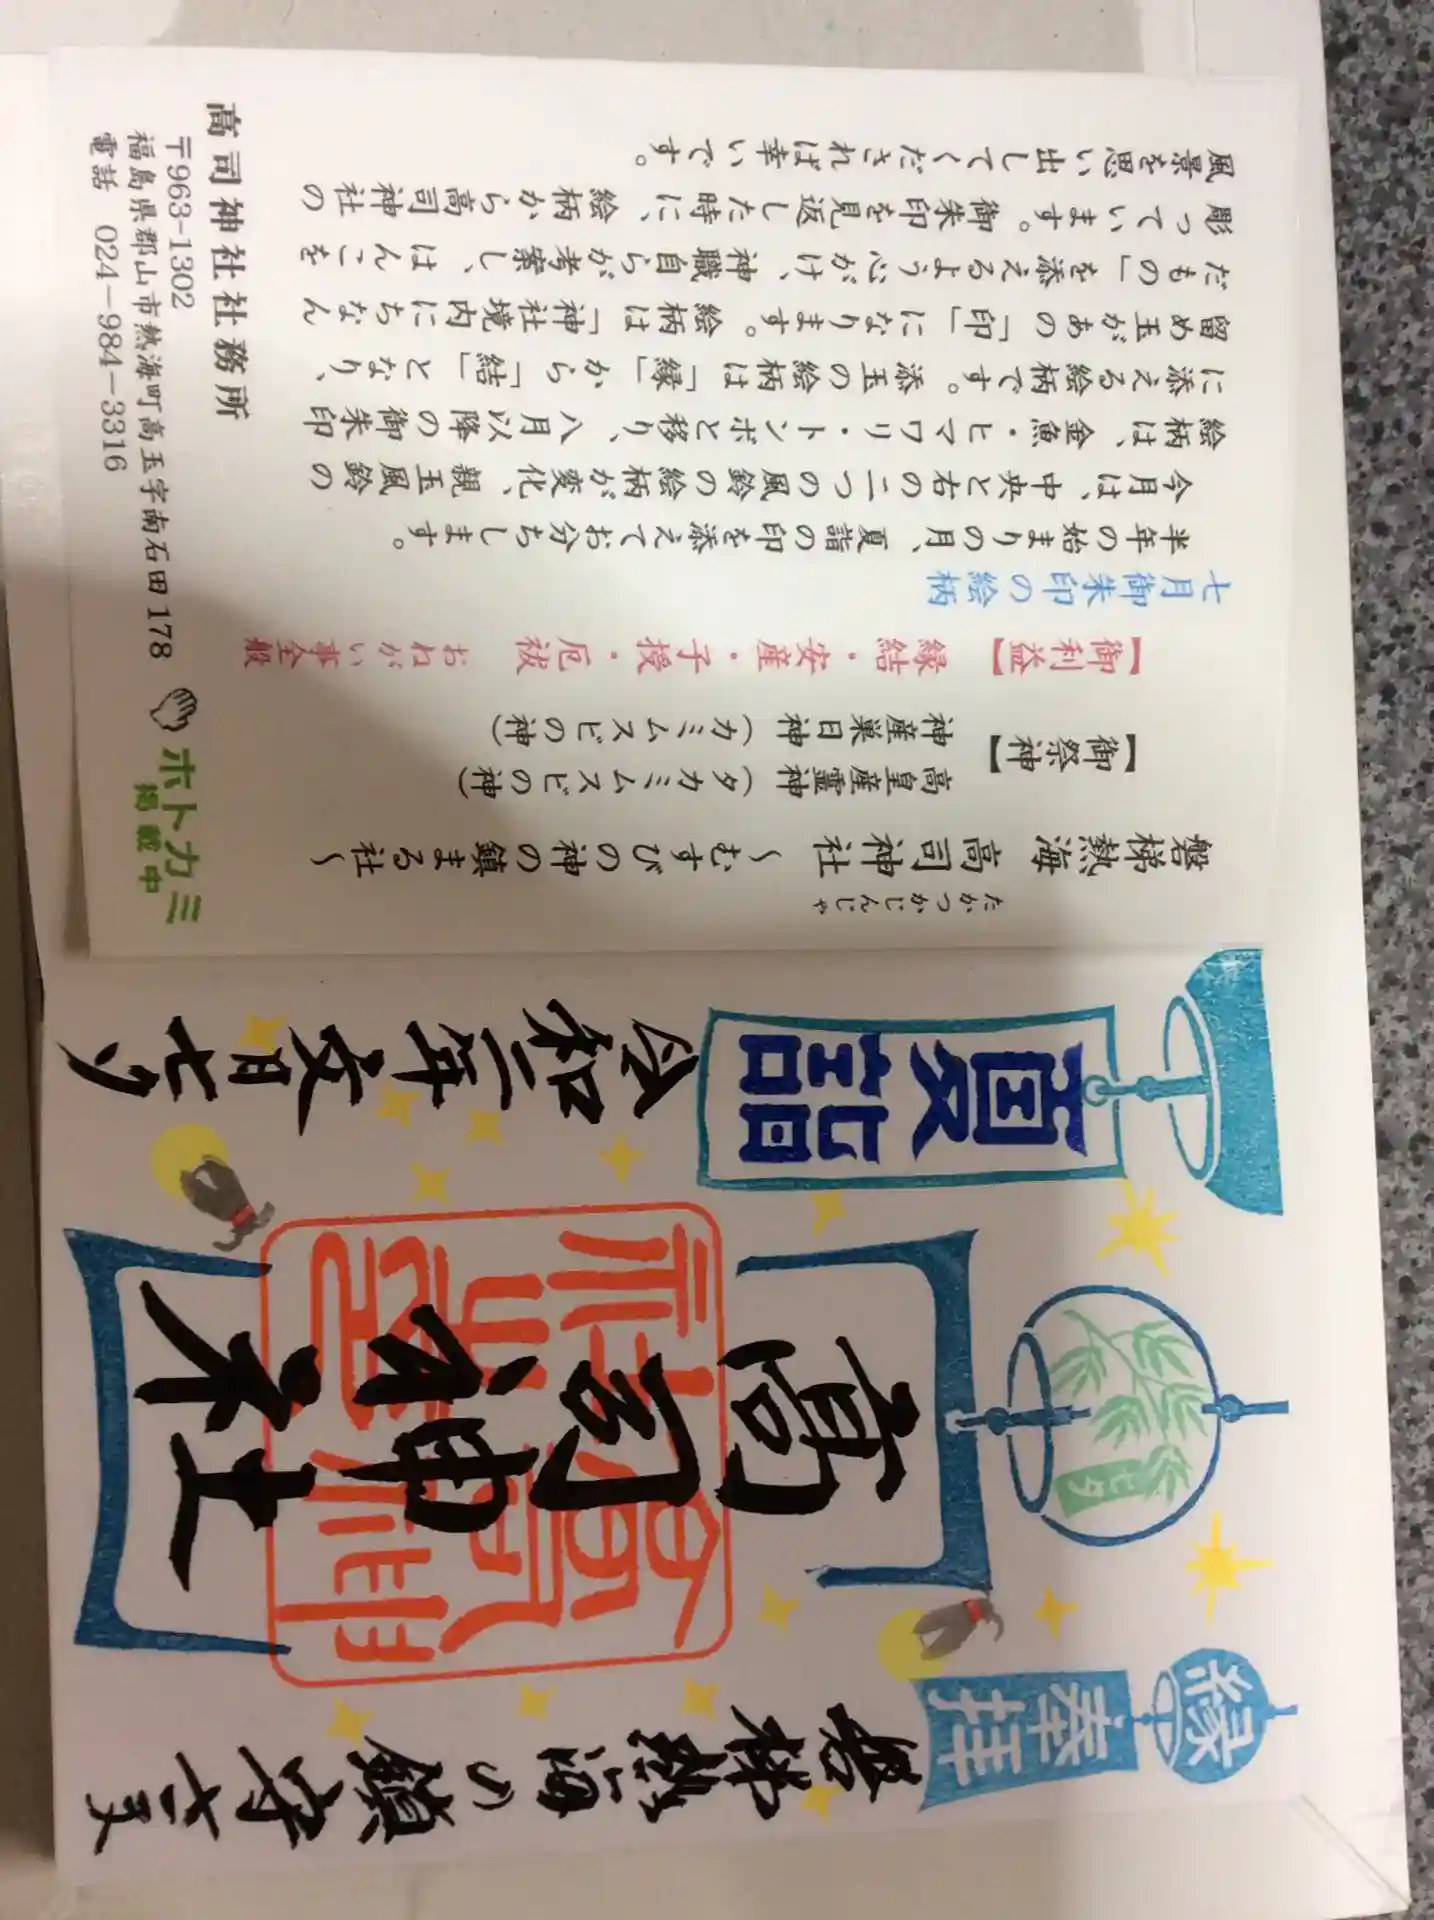 たかつかじんじゃ
磐梯熱海 高司神社 ～むすびの神の鎮まる社～
【御祭神】
高皇産霊神(タカミムスビの神)
神産巣日神(カミムスビの神)
【御利益】 縁結・安産・子授・厄祓 おねがい事全般
七月御朱印の絵柄
半年の始まりの月、夏詣の印を添えてお分ちします。
今月は、中央と右の二つの風鈴の絵柄が変化、親玉風鈴の
絵柄は、金魚・ヒマワリ・トンボと移り、八月以降の御朱印
に添える絵柄です。添玉の絵柄は「縁」から「結」となり、
留め玉があの「印」になります。絵柄は「神社境内にちなん
だもの」を添えるよう心がけ、神職自らが考案し、はんこを
彫っています。御朱印を見返した時に、絵柄から高司神社の
風景を思い出してくだされば幸いです。
高司神社社務所
〒963-1302
福島県郡山市熱海町高玉字南石田178
電話 024-984-3316
ホトカミ
掲載中
縁
奉拝
磐梯熱海の鎮守さま
七夕
高司神社
夏詣
令和二年文月七夕